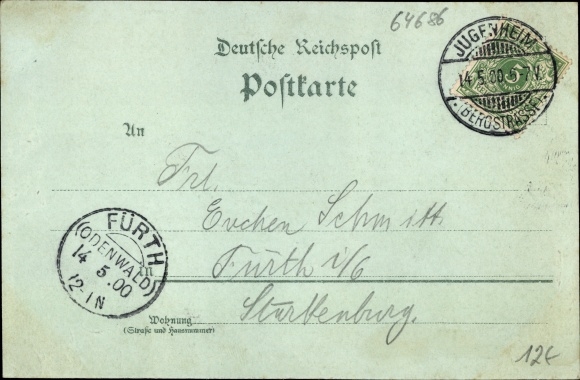 64686
Deutsche Reichspost
Postkarte
JUGENHEIM
14.5.00.5-7.V.
(BERGSTRASSE)
5
An
Frl.
Evchen Schmitt
Fürth i/O
in
Starkenburg.
FÜRTH
(ODENWALD)
14 5.00
12-1N
Wohnung
(Straße und Hausnummer)
12€